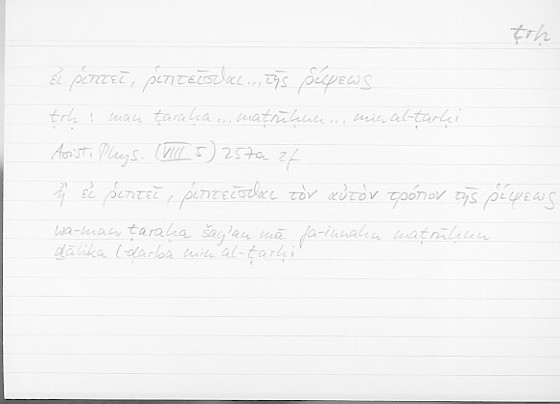 ṭrḥ
εἰ ῥιπτεῖ, ῥιπτεῖσθαι ... τῆς ῥίψεως
ṭrḥ : man ṭaraḥa ... maṭrūḥun ... min al-ṭarḥi
Arist. Phys. (VIII 5) 257a 2f
ἢ εἰ ῥιπτεῖ, ῥιπτεῖσθαι τὸν αὐτὸν τρόπον τῆς ῥίψεως
wa-man ṭaraḥa šayʾan mā fa-innahu maṭrūḥun
ḏālika l-ḍarba min al-ṭarḥi